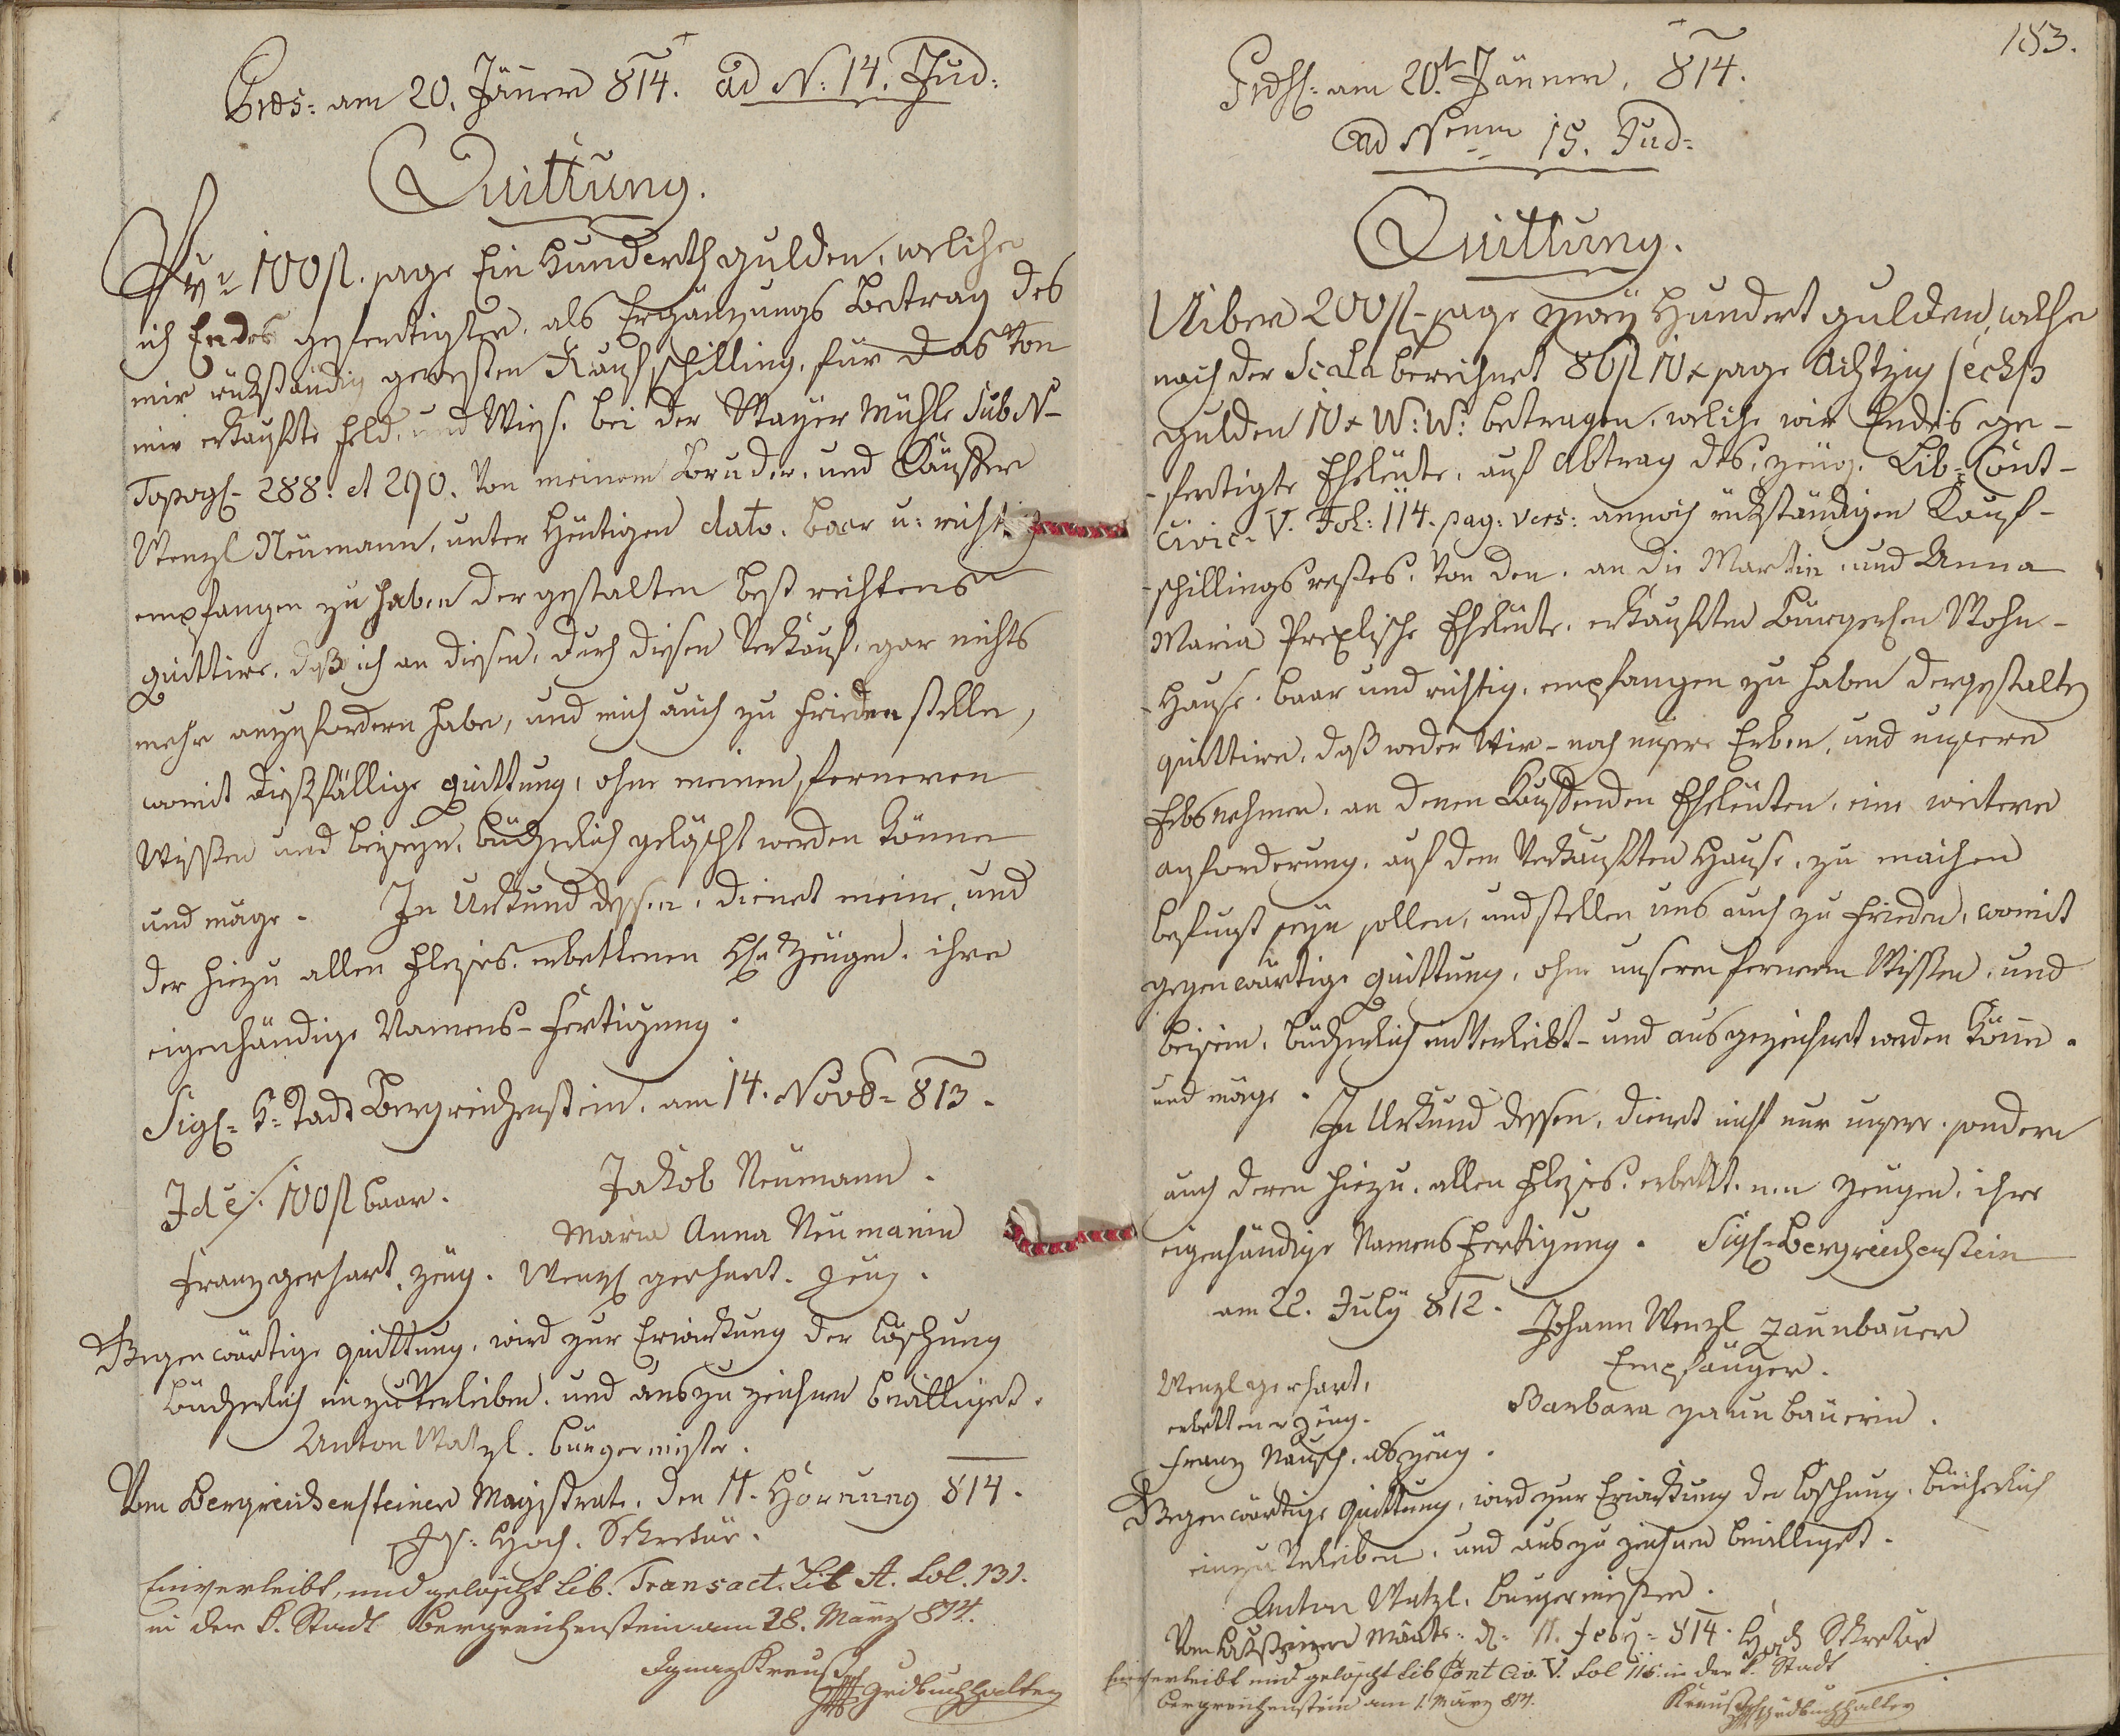 Prds: am 20. Jäner 814. ad N: 14. Jud:
Quittung.
Pr 100 fl. sage Ein Hunderth gulden, welche
ich Endes gefertigter, als Ergänzungs Betrag des
mir rükständig gewesten Kaufschilling, für das von
mir erkaufte Feld, und Wies. bei der Mayer Mühle Sub N-
Topogl- 288. et 290. von meinem Bruder, und Käuffer
Wenzl Neumann, unter heutigen dato. baar u: richtig
empfangen zu haben dergestalten best richtens
quittire, daß ich an diesen, durch diesen Verkauf, gar nichts
mehr anzufordern habe, und mich auch zu frieden stelle,
womit dießfällige quittung, ohne meinen ferneren
Wissen und beiseyn, bücherlich gelöscht werden könne
und möge. In Urkund dessen, dienet meine, und
der hiezu allen Fleises erbettenen H. Zeugen, ihre
eigenhändige Namens-Fertigung.
Sigl= K: Stadt Bergreichenstein, am 14. Novb= 813.
Id e/: 100 fl baar.
Jakob Neumann.
Maria Anna Neumanin
Franz gerhart, zeug. Wenzl gerhart. zeug.
Gegenwärtige quittung, wird zur Erwirkung der Löschung
Bücherlich einzuverleiben, und auszuzeichnen bewilliget.
Anton Watzl. bürgermeister.
Vom Bergreichensteiner Magistrate, den 11. Hornung 814.
Hoch. Sekretär.
Einverleibt, und gelöscht Lib. Transact. Lit A. Fol. 131.
in der k. Stadt Bergreichenstein am 28. März 814.
Ignaz Kreuß
Grdbuchhalter
153.
am 20t Jänner, 814.
ad Num 15. Jud:
Quittung.
Uiber 200 fl- sage zwey Hundert gulden, welche
nach der Scala berechnet 86 fl 10 x sage Achtzig sechs
gulden 10 x W: W: betragen, welche wir Endes ge-
-fertigte Eheleute, auf Abtrag des, zeug. Lib: Cont-
Civic: V. Fol: 114. pag: vers: annoch rükständigen Kauf-
-schillingsrestes, von den, an die Martin und Anna
Maria Prexlische Eheleute, erkauften Bürgerlen Wohn-
-Hause. baar und richtig, empfangen zu haben dergestalten
quittire, daß weder Wir- noch unsere Erben, und unsere
Erbsnehmer, an denen Kauffenden Eheleuten, eine weitere
anforderung, auf dem Verkauften Hause, zu machen
befugt seyn sollen, und stellen uns auch zu frieden, womit
gegenwärtige quittung, ohne unseren ferneren Wissen, und
beisein, bücherlich einverleibt- und ausgezeichnet werden könne.
und möge.
In Urkund dessen, dienet nicht nur unsere, sondern
auch deren hiezu, allen Fleises, erbettenen zeugen, ihre
eigenhändige Namens Fertigung. Sigl- Bergreichenstein
am 22. July 812.
Johann Wenzl zaunbauer
Empfänger.
Wenzl gerhart,
erbettener zeug.
Barbara zaunbauerin.
Franz Rausch, als zeug.
Gegenwärtige quittung, wird zur Erwirkung der Löschung, bücherlich
einzuverleiben, und auszuzeichnen bewilliget.
Anton Watzl. Bürgermeister.
11. Feby= 814. Hoch Sekretär
Einverleibt und gelöscht Lib Cont Civ. V. Fol 115. in der k. Stadt
Bergreichenstein am 1. März 814.
Kreuß Grdbuchhalter